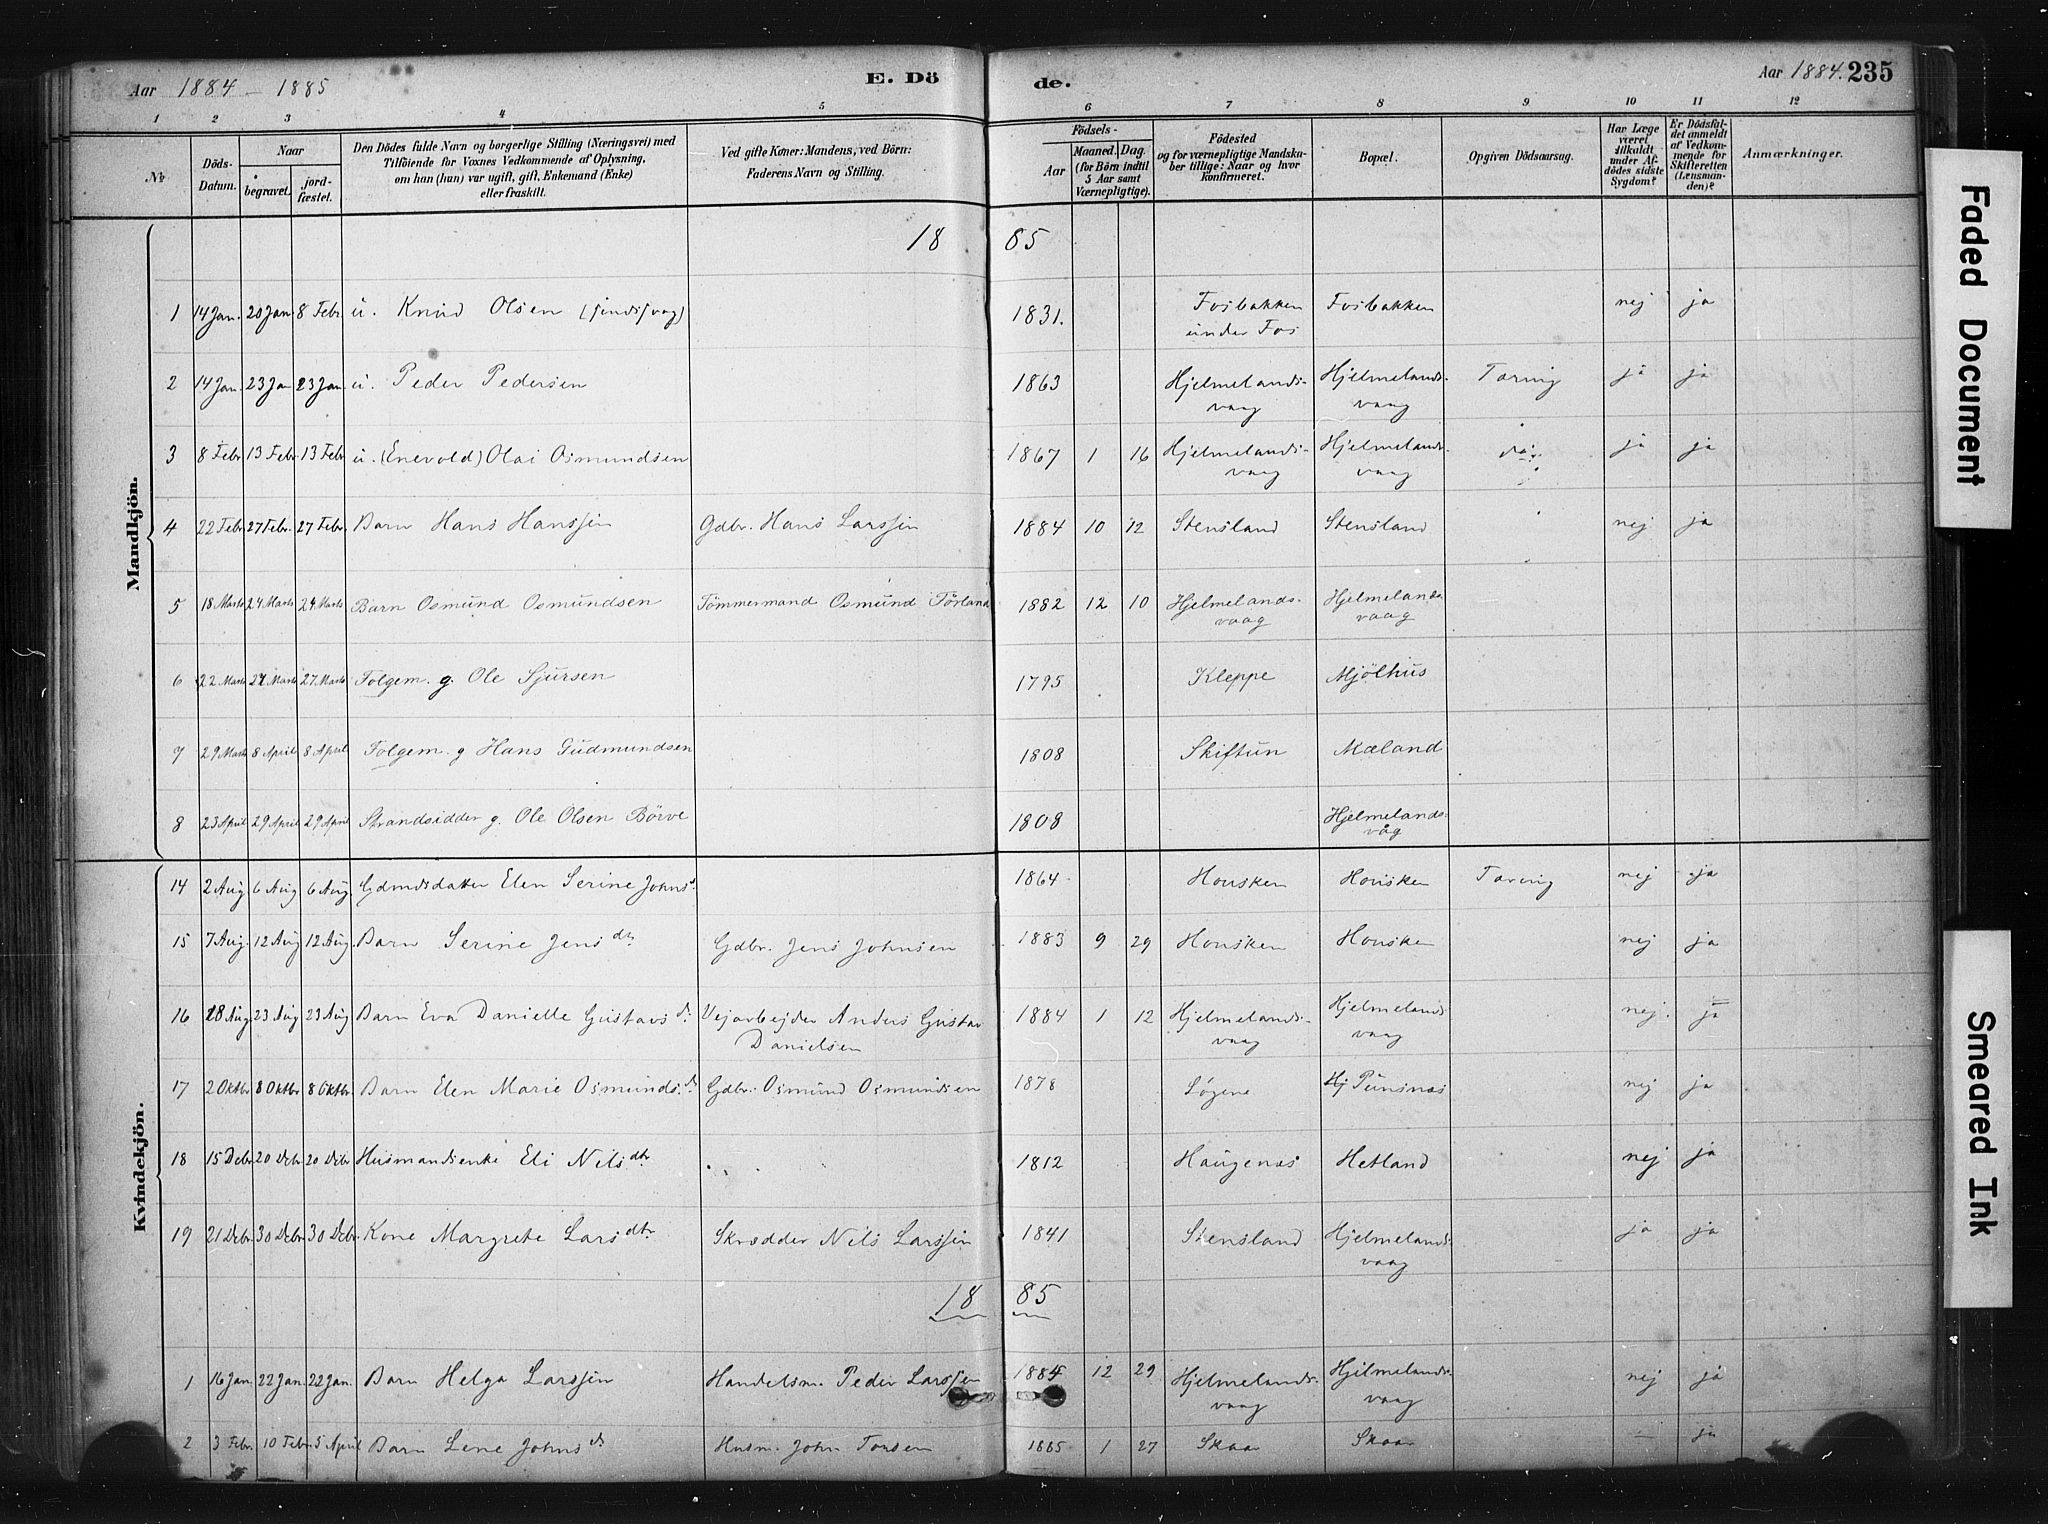 Aar 1884 - 1885
E. Dö de.
Aar 1884. 235
1 2 3 4 5 6 7 8 9 10 11 12
No
Döds-Datum.
Naar
begravet.
jord-fæstet.
Den Dödes fulde Navn og borgerlige Stilling (Næringsvei) med
Tilföiende for Voxnes Vedkommende af Oplysning,
om han (hun) var ugift, gift, Enkemand (Enke)
eller fraskilt.
Ved gifte Koner: Mandens, ved Börn:
Faderens Navn og Stilling.
Födsels-
Aar
Maaned. Dag.
(for Börn indtil
5 Aar samt
Værnepligtige).
Födested
og for værnepligtige Mandska-
ber tillige: Naar og hvor
konfirmeret.
Bopæl.
Opgiven Dödsaarsag.
Har Læge
været
tilkaldt
under Af-
dödes sidste
Sygdom?
Er Dödsfal-
det anmeldt
af Vedkom-
mende for
Skifteretten
(Lensman-
den)?
Anmærkninger.
Mandkjön.
18 85
1 14 Jan. 20 Jan 8 Febr. u. Knud Olsen (sindssvag) 1831. Fosbakken under Fos Fosbakken nej ja
2 14 Jan. 23 Jan 23 Jan. u. Peder Pedersen 1863 Hjelmelands-vaag Hjelmelands-vaag Tæring ja ja
3 8 Febr 13 Febr. 13 Febr u. (Enevold) Olai Osmundsen 1867 1 16 Hjelmelands-vaag Hjelmelands-vaag ja ja
4 22 Febr 27 Febr. 27 Febr. Barn Hans Hanssen Gdbr. Hans Larssen 1884 10 12 Stensland Stensland nej ja
5 18 Marts 24 Marts 24 Marts Barn Osmund Osmundsen Tömmermand Osmund Törland 1882 12 10 Hjelmelands-vaag Hjelmelands-vaag
6 22 Marts 27 Marts 27 Marts Folgem. g. Ole Sjursen 1795 Kleppe Mjölhus
7 29 Marts 8 April 8 April Folgem. g Hans Gudmundsen 1808 Skiftun Mæland
8 23 April 29 April 29 April Strandsidder g. Ole Olsen Börve 1808 Hjelmelands-våg
Kvindekjön.
14 2 Aug 6 Aug 6 Aug Gdmdsdatter Elen Serine Johns 1864 Housken Housken Tæring nej ja
15 7 Aug. 12 Aug 12 Aug Barn Serine Jens dtr Gdbr. Jens Johnsen 1883 9 29 Housken Housken nej ja
16 18 Aug 23 Aug 23 Aug Barn Eva Danielle Gustavs dr Vejarbejder Anders Gustav Danielsen 1884 1 12 Hjelmelands-vaag Hjelmelands-vaag nej. ja
17 2 Oktbr 8 Oktbr 8 Oktbr. Barn Elen Marie Osmunds dr Gdbr. Osmund Osmundsen 1878 Hj Pünsnæs nej ja
18 15 Debr 20 Debr 20 Debr Husmandsenke Eli Nils dtr 1812 Haugenæs Hetland nej ja
19 21 Debr. 30 Debr 30 Debr. Kone Margrete Lars dtr Skrædder Nils Larssen 1841 Stensland Hjelmelands-vaag ja ja
18 85
1 16 Jan 22 Jan 22 Jan. Barn Helga Larssen Handelsm. Peder Larssen 1884 12 29 Hjelmelands-vaag Hjelmelands-vaag nej ja
2 3 Febr. 10 Febr 5 April Barn Lene Johns dr Husm. John Torsen 1885 1 27 Skaar Skaar - ja
Faded Document
Smeared Ink